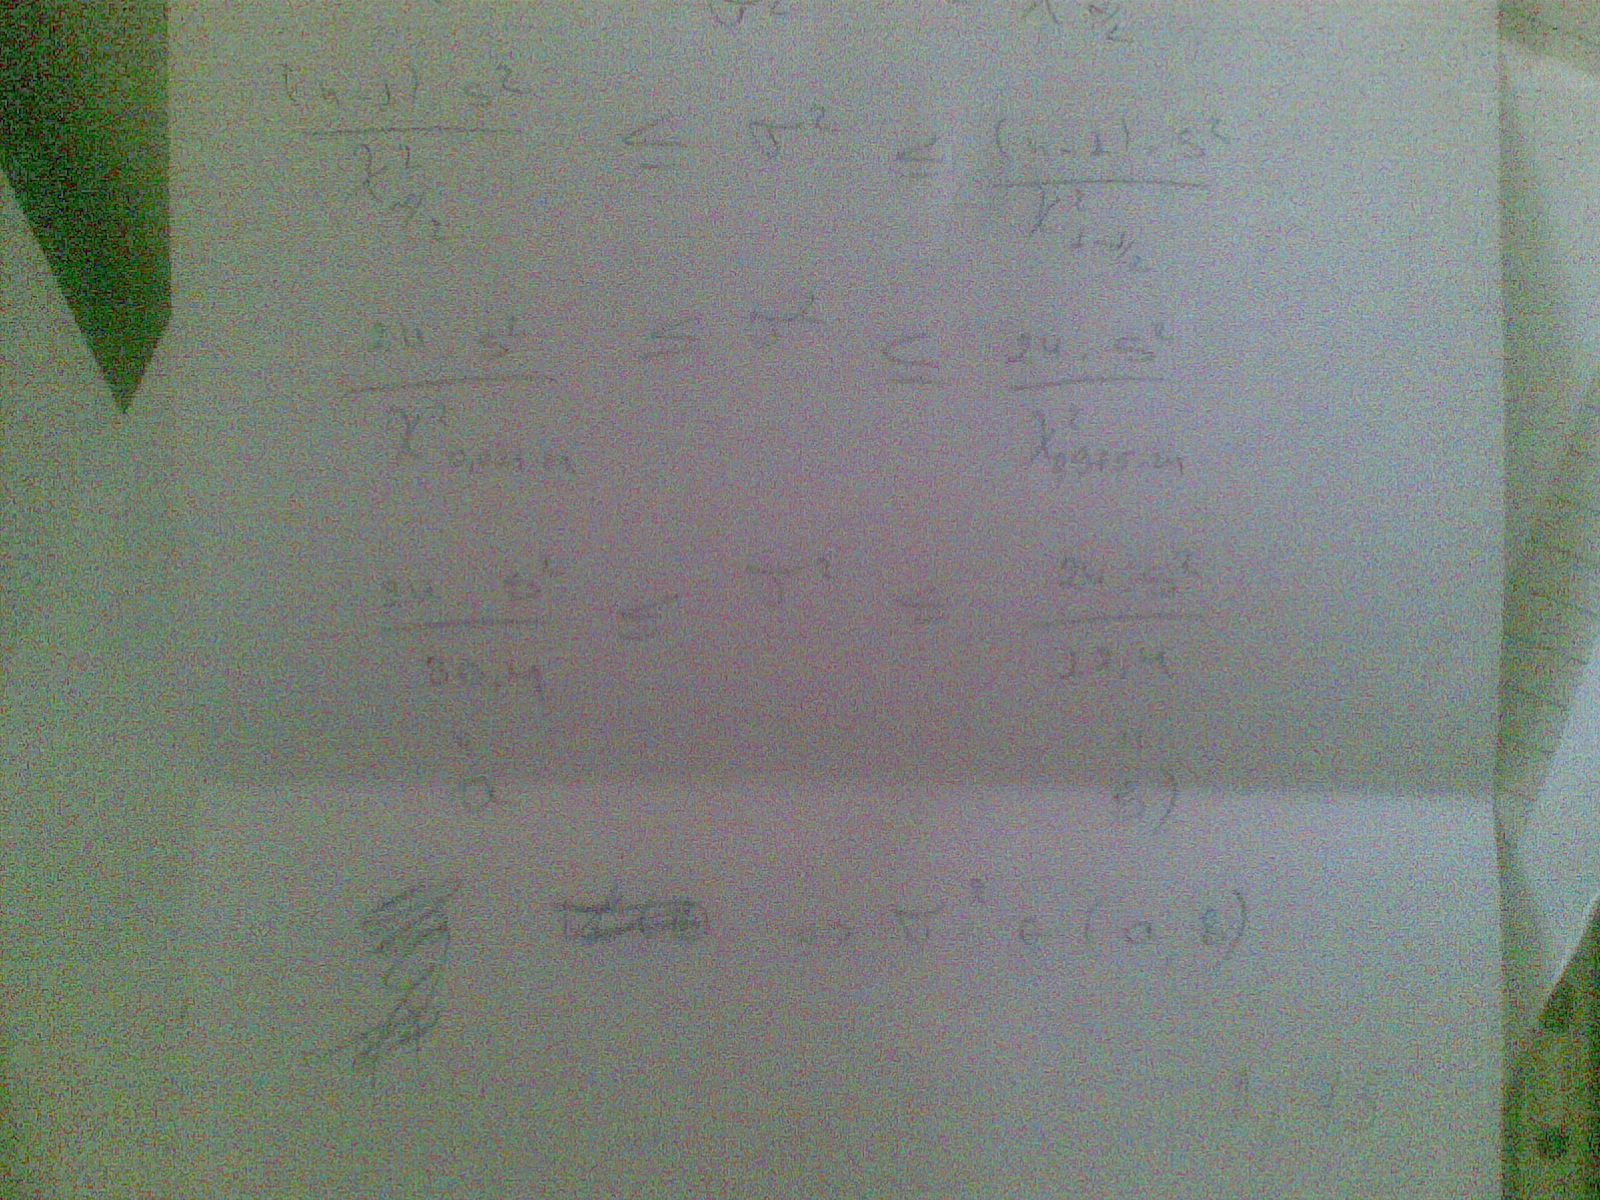 (n-1) s² / χ²α/2 ≤ σ² ≤ (n-1) · s² / χ²1-α/2
24 · s² / χ²0,025·24 ≤ σ² ≤ 24 · s² / χ²0,975·24
24 · s² / 39,4 ≤ σ² = 24 · s² / 12,4
" "
a b)
=> σ² ∈ (a, b)